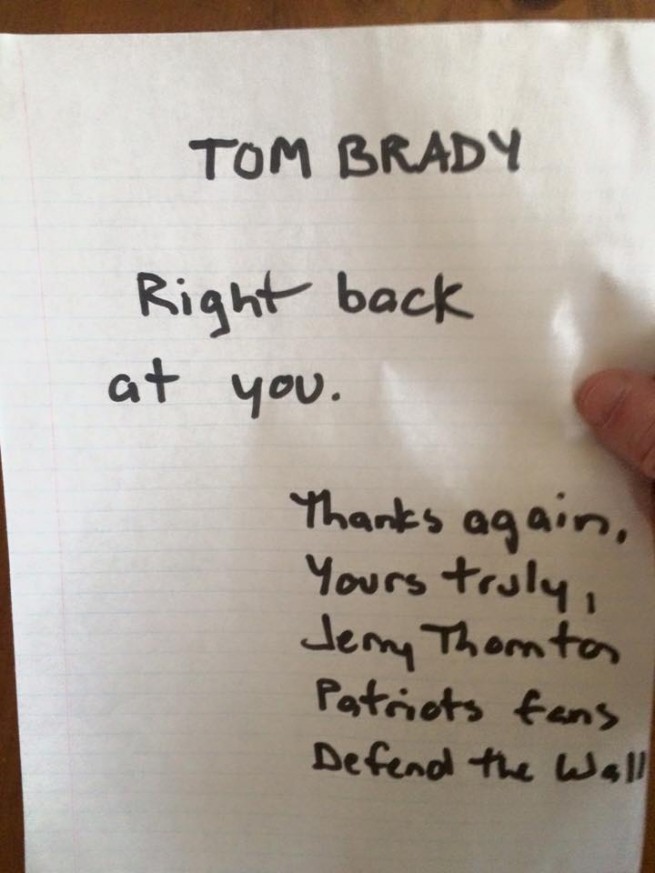 TOM BRADY
Right back
at you.
Thanks again,
Yours truly,
Jerry Thornton
Patriots fans
Defend the Wall